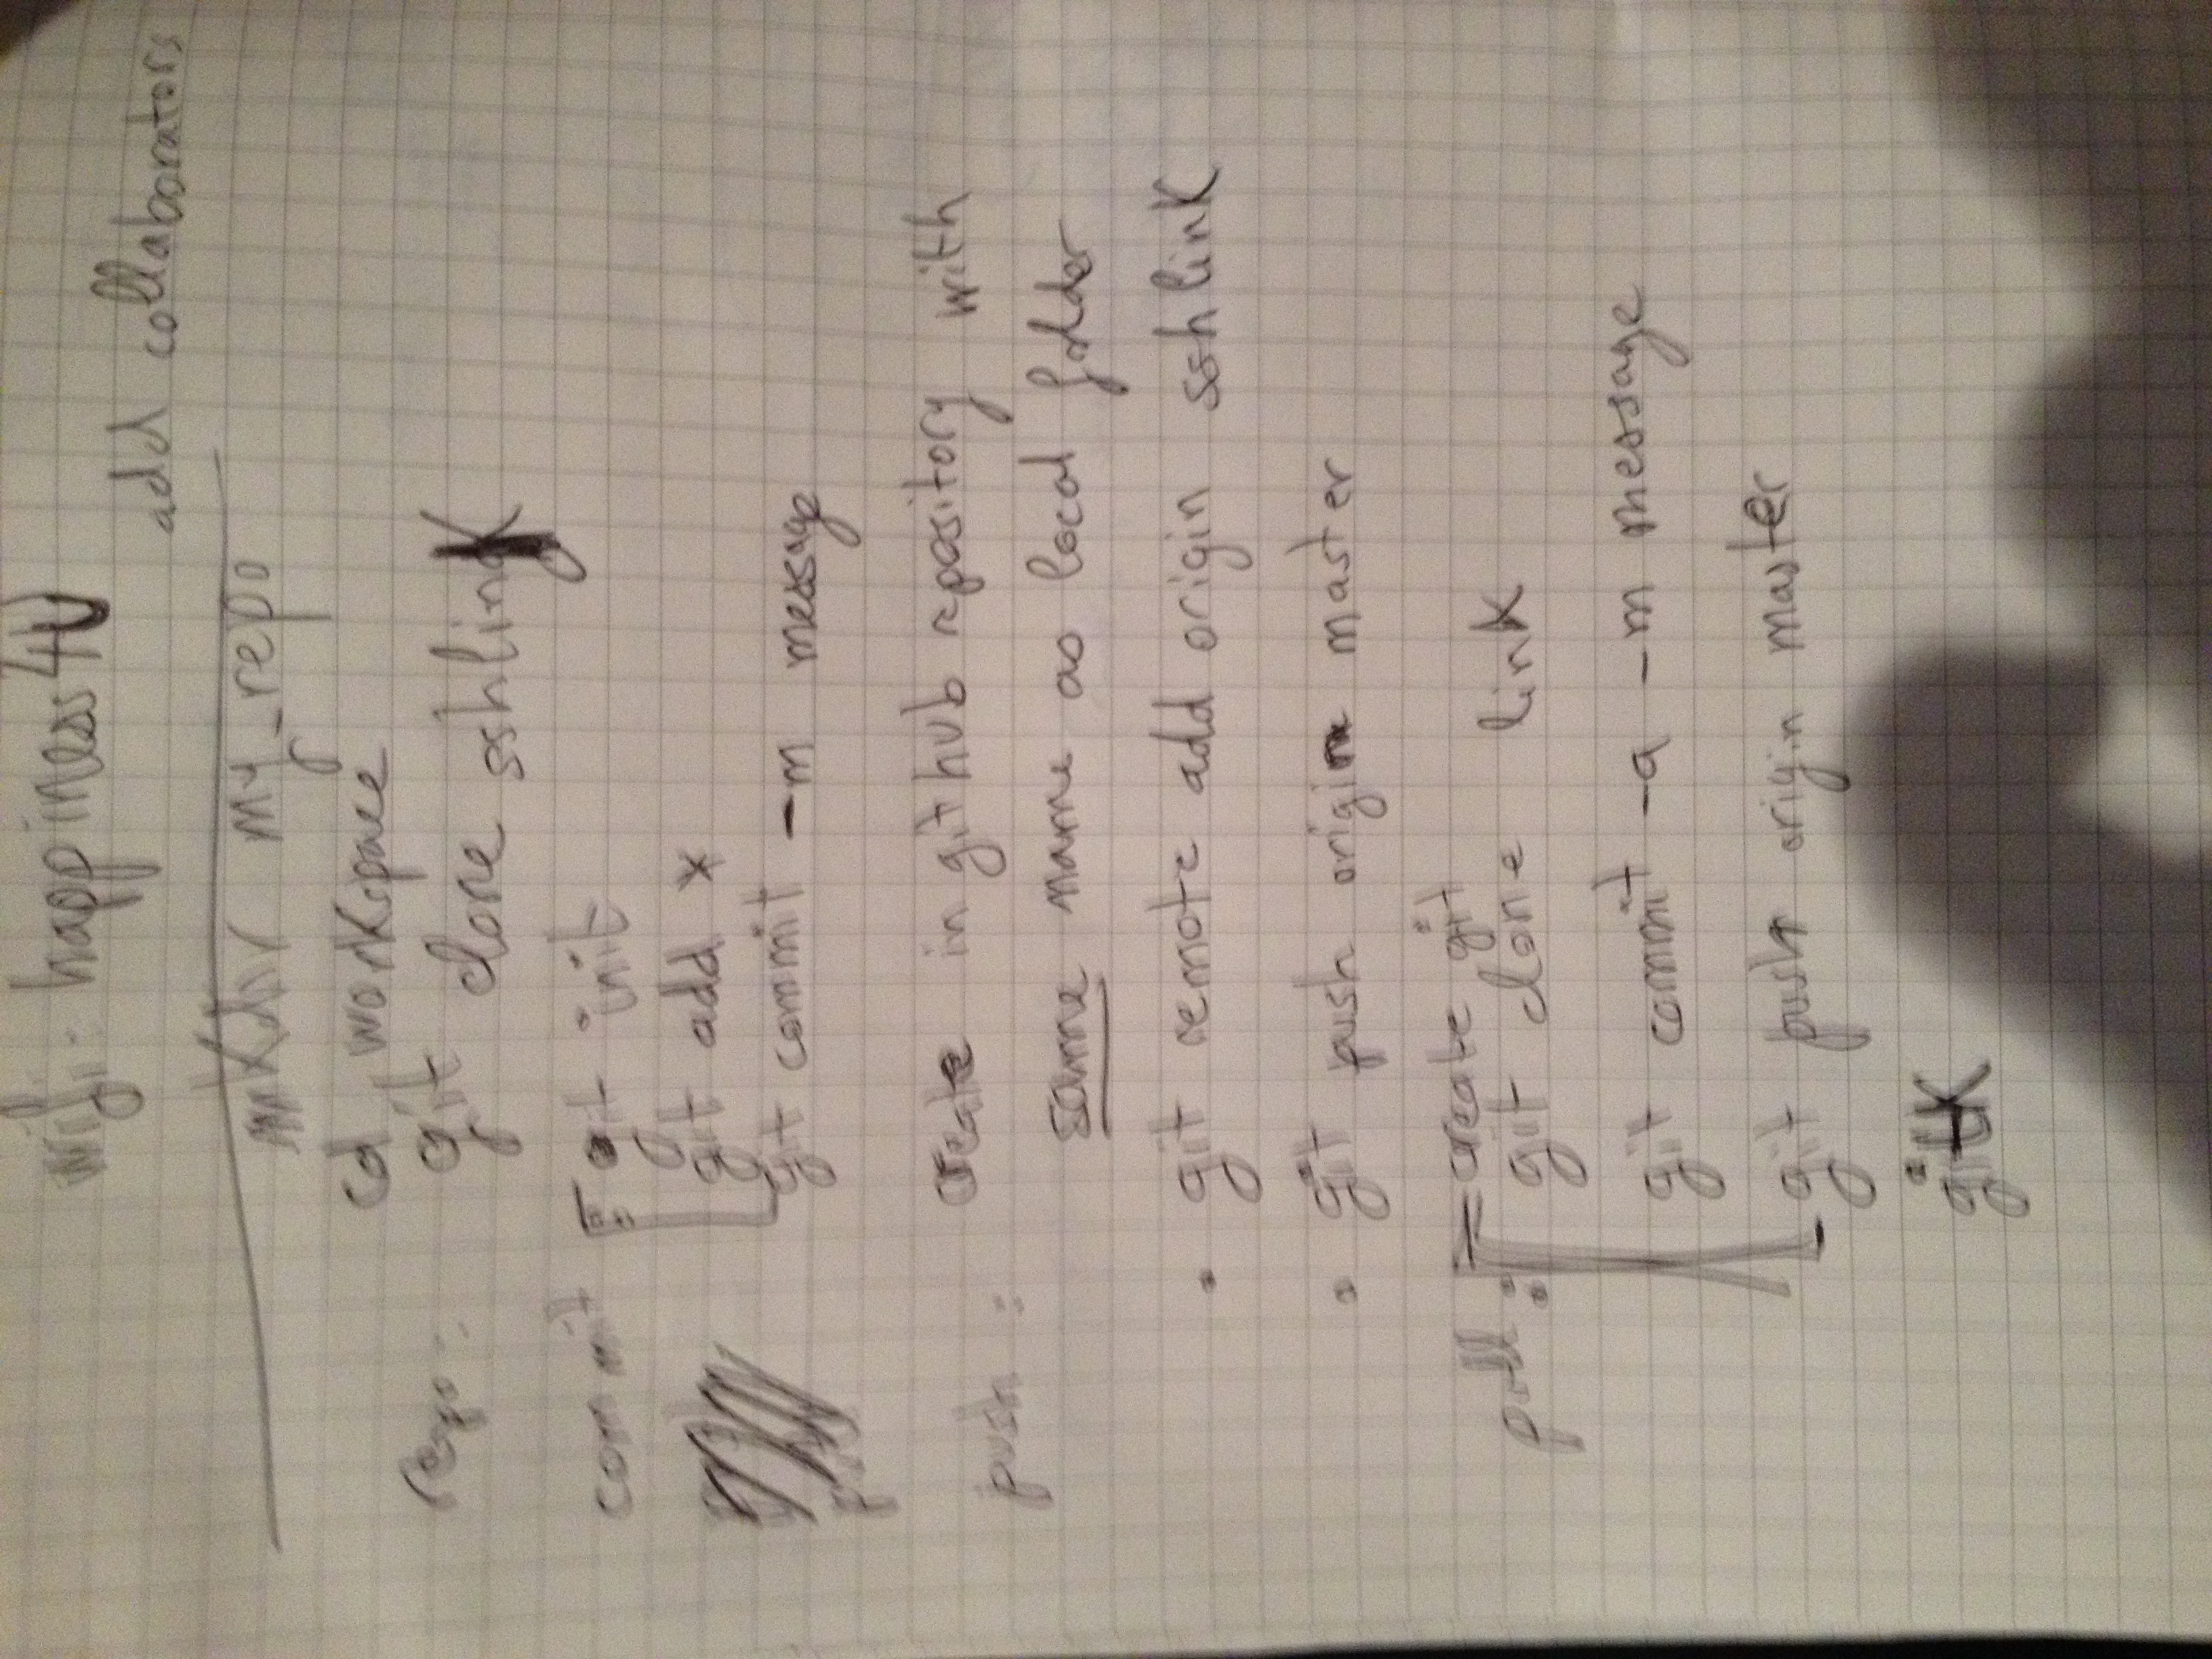 wifi: happiness4U
add collaborators
mkdir my_repo
cd workspace
repo: git clone sshlink
commit git init
git add *
git commit -m message
push : create in github repository with
same name as local folder
• git remote add origin sshlink
• git push origin master
create git
pull : git clone link
git commit -a -m message
git push origin master
gitk